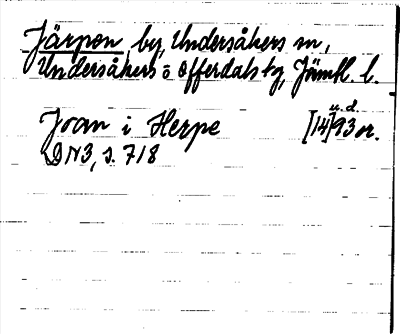 Järpen by, Undersåkers sn,
Undersåkers o Offerdals tg, Jämtl. l.
u.d.
Joan i Herpe [14]93 or.
DN3, s. 718